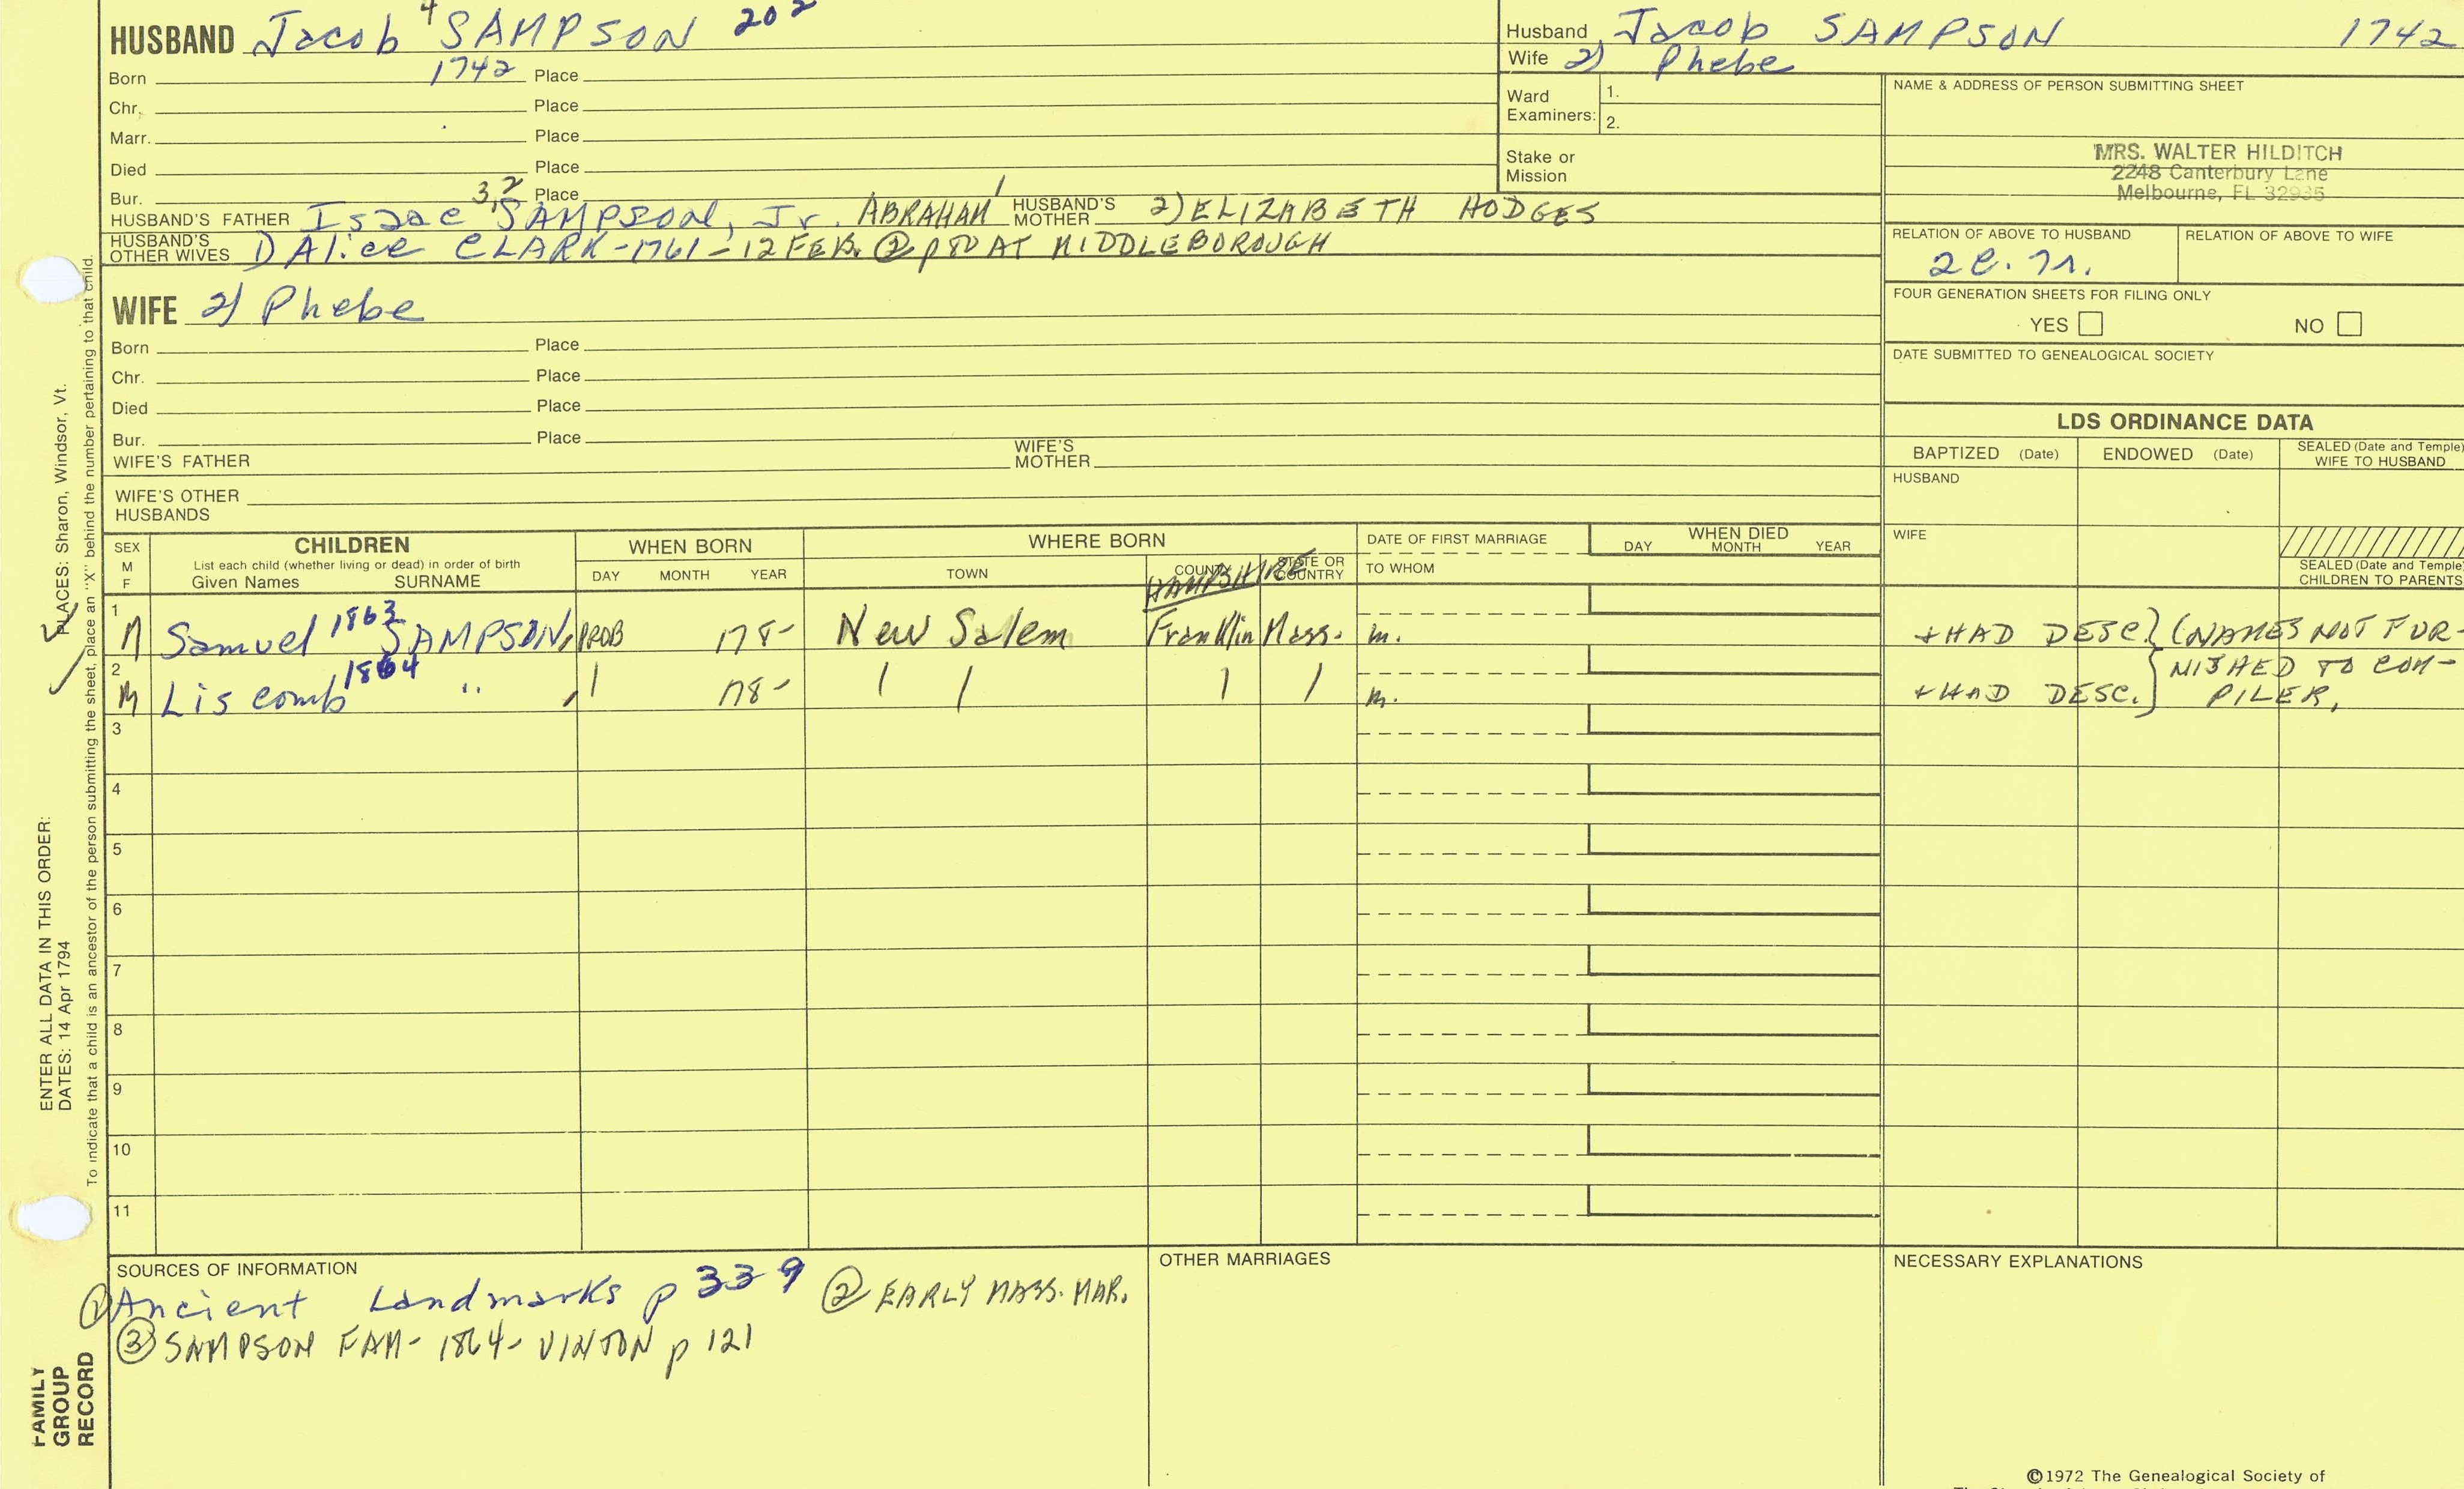 HUSBAND Jacob 4 SAMPSON 202
Born 1742 Place
Chr. Place
Marr. Place
Died Place
Bur. Place
HUSBAND'S FATHER Isaac 3,2 SAMPSON, Jr. ABRAHAM 1 HUSBAND'S MOTHER 2) ELIZABETH HODGES
HUSBAND'S OTHER WIVES 1) Alice CLARK-1761-12 FEB. ② p 80 AT MIDDLEBOROUGH
Husband Jacob SAMPSON 1742
Wife 2) Phebe
Ward Examiners: 1.
2.
Stake or Mission
NAME & ADDRESS OF PERSON SUBMITTING SHEET
MRS. WALTER HILDITCH
2248 Canterbury Lane
Melbourne, FL 32935
RELATION OF ABOVE TO HUSBAND RELATION OF ABOVE TO WIFE
FOUR GENERATION SHEETS FOR FILING ONLY
YES NO
DATE SUBMITTED TO GENEALOGICAL SOCIETY
WIFE 2) Phebe
Born Place
Chr. Place
Died Place
Bur. Place
WIFE'S FATHER WIFE'S MOTHER
WIFE'S OTHER HUSBANDS
LDS ORDINANCE DATA
BAPTIZED (Date) ENDOWED (Date) SEALED (Date and Temple) WIFE TO HUSBAND
HUSBAND
WIFE
SEALED (Date and Temple) CHILDREN TO PARENTS
SEX M F
CHILDREN
List each child (whether living or dead) in order of birth
Given Names SURNAME
WHEN BORN
DAY MONTH YEAR
WHERE BORN
TOWN COUNTY STATE OR COUNTRY
HAMPSHIRE
DATE OF FIRST MARRIAGE
TO WHOM
WHEN DIED
DAY MONTH YEAR
1 M Samuel 1863 SAMPSON, PROB 178- New Salem Franklin Mass. m. + HAD DESC. } (NAMES NOT FUR-
NISHED TO COM-
2 M Liscomb 1864 " , 178- m. + HAD DESC. } PILER.
3
4
5
6
7
8
9
10
11
SOURCES OF INFORMATION
① Ancient Landmarks p 339 ② EARLY MASS. MAR.
③ SAMPSON FAM- 1864- VINTON p 121
OTHER MARRIAGES
NECESSARY EXPLANATIONS
©1972 The Genealogical Society of
PLACES: Sharon, Windsor, Vt.
To indicate that a child is an ancestor of the person submitting the sheet, place an "X" behind the number pertaining to that child.
ENTER ALL DATA IN THIS ORDER:
DATES: 14 Apr 1794
FAMILY
GROUP
RECORD